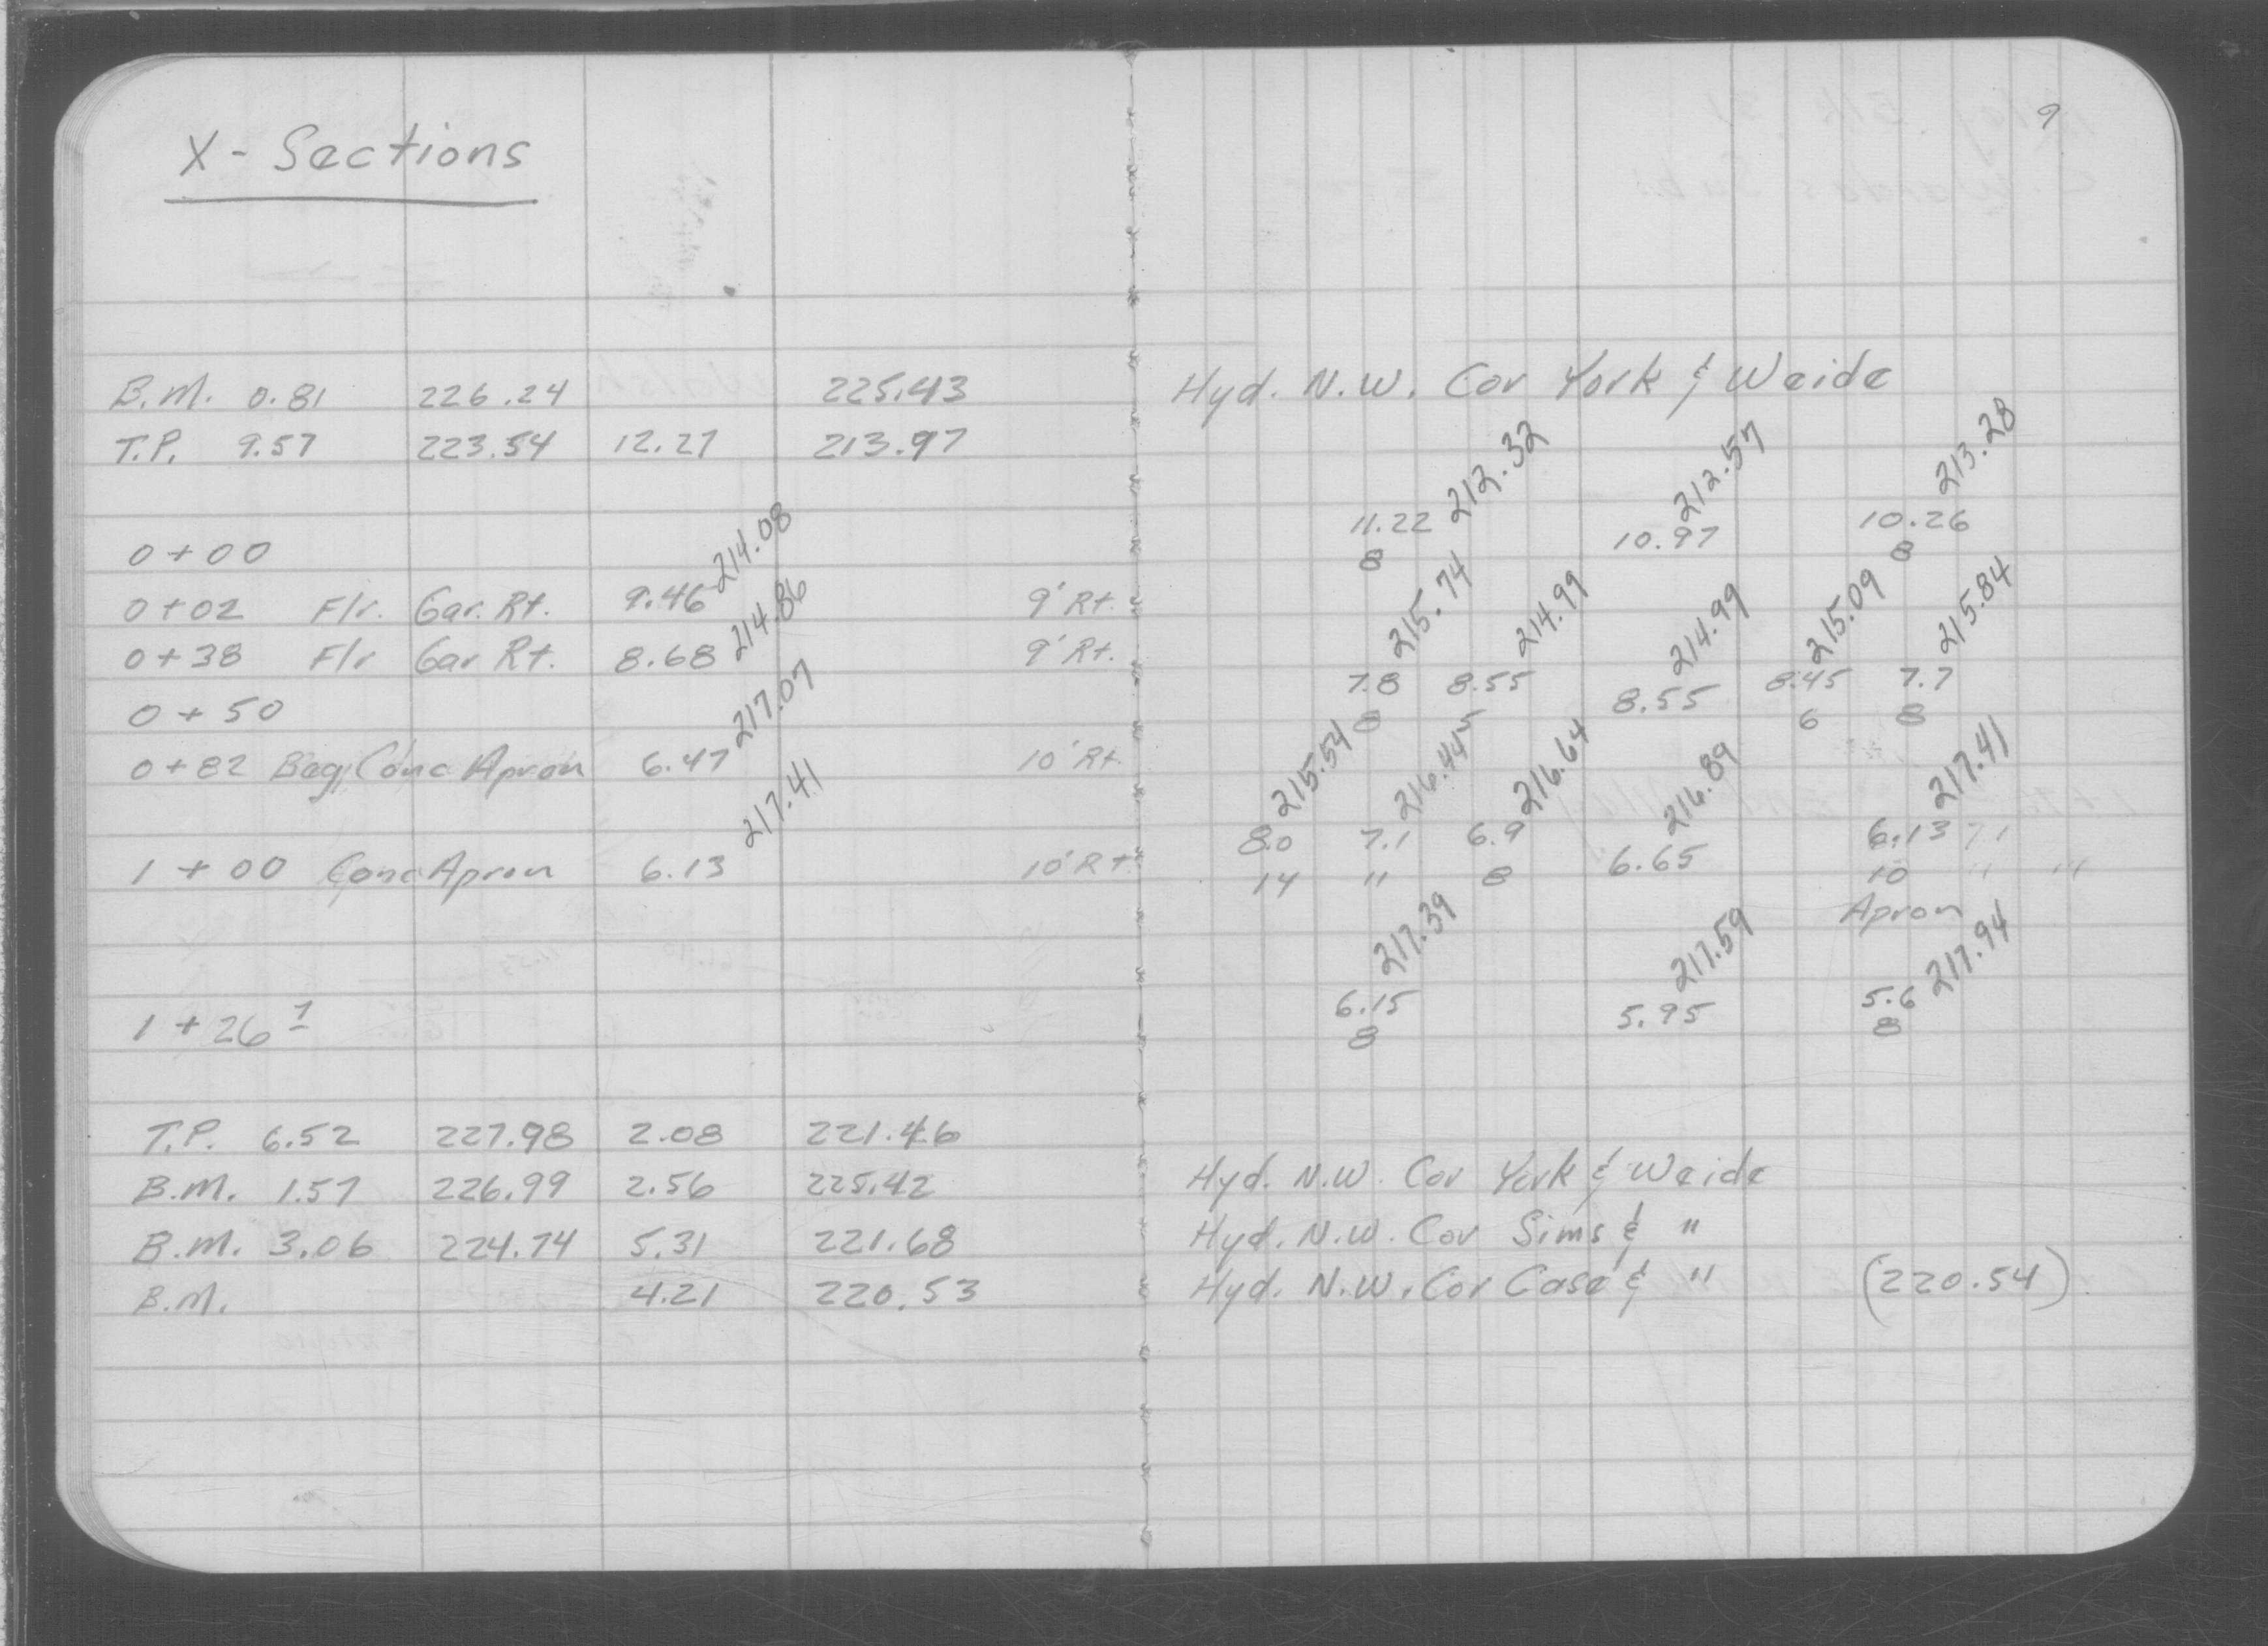 9
X - Sections
B.M. 0.81 226.24 225.43 Hyd. N.W. Cor York & Weide
T.P. 9.57 223.54 12.27 213.97
212.32 212.57 213.28
11.22 10.97 10.26
0+00 8 8
214.08
0+02 Flr. Gar. Rt. 9.46 9' Rt.
214.86
0+38 Flr Gar Rt. 8.68 9' Rt.
215.74 214.99 214.99 215.09 215.84
7.8 8.55 8.55 8.45 7.7
0+50 8 6 8
217.07
0+82 Beg. Conc Apron 6.47 10' Rt.
215.54 216.445 216.64 216.89 217.41
217.41
8.0 7.1 6.9 6.65 6.13 7.1
1+00 Conc Apron 6.13 10' Rt. 14 11 8 10 11
Apron
217.39 217.59 217.94
6.15 5.95 5.6
1+26 1 8 8
T.P. 6.52 227.98 2.08 221.46
B.M. 1.57 226.99 2.56 225.42 Hyd. N.W. Cor York & Weide
B.M. 3.06 224.74 5.31 221.68 Hyd. N.W. Cor Sims & "
B.M. 4.21 220.53 Hyd. N.W. Cor Case & " (220.54)